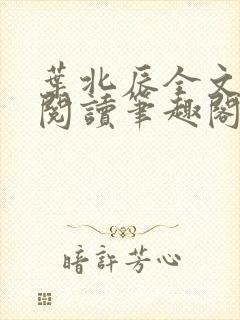 葉北辰全文
閱讀筆趣閣
暗許芳心